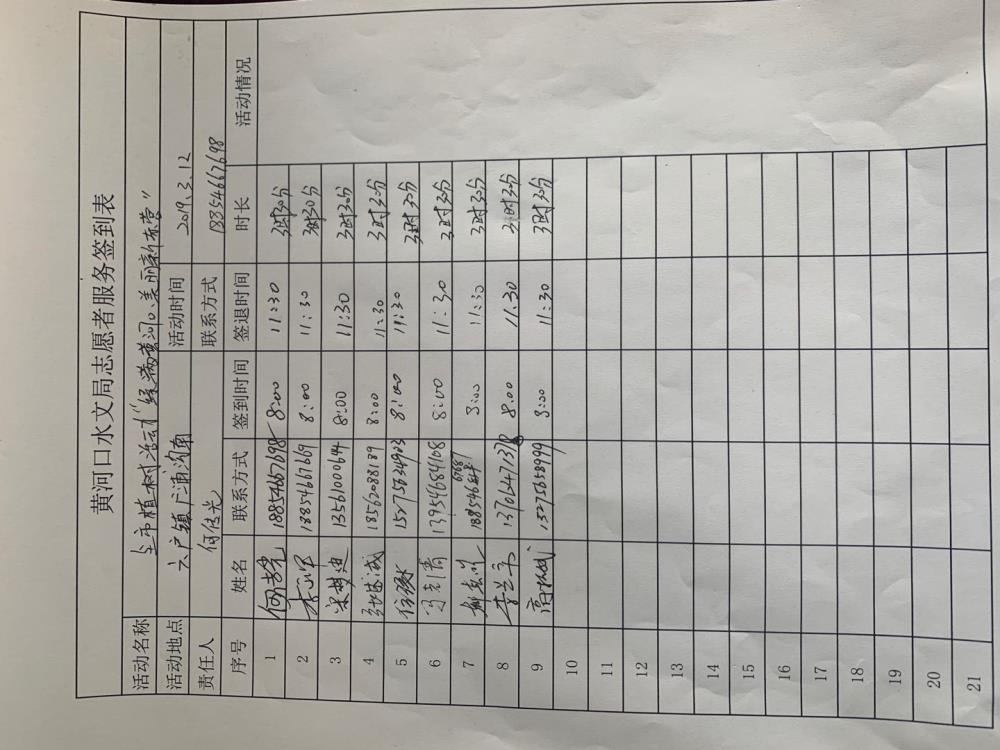 黄河口水文局志愿者服务签到表
活动名称 全市植树活动"绿满黄河口、美丽新东营"
活动地点 六户镇广浦沟南 活动时间 2019.3.12
责任人 联系方式 13354667698
序号 姓名 联系方式 签到时间 签退时间 时长 活动情况
1 18854667698 8:00 11:30 3时30分
2 18854667669 8:00 11:30 3时30分
3 梁梦迪 13561000644 8:00 11:30 3时30分
4 18562088189 8:00 11:30 3时30分
5 15275634903 8:00 11:30 3时30分
6 13954684108 8:00 11:30 3时30分
7 8:00 11:30 3时30分
8 李兰高 8:00 11:30 3时30分
9 13275658999 8:00 11:30 3时30分
10
11
12
13
14
15
16
17
18
19
20
21